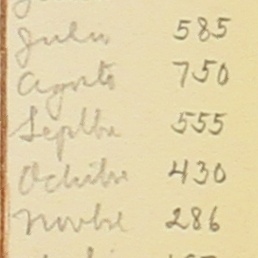 Julio 585
Agosto 750
Septbre 555
Octubre 430
Novbre 286